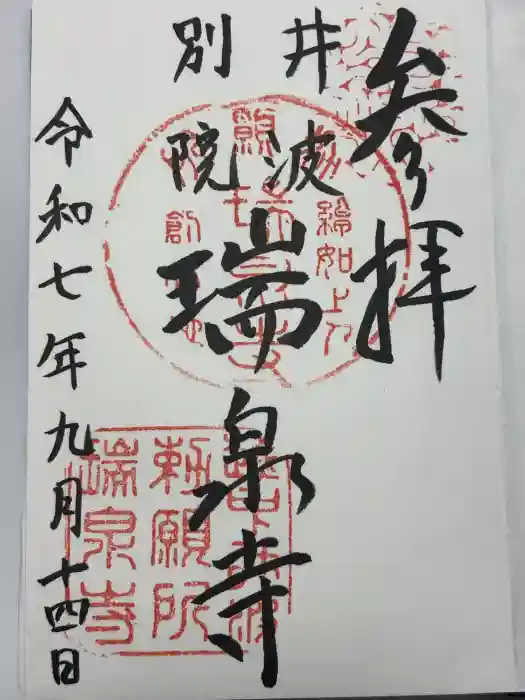 参拝
井波
別院
瑞泉寺
令和七年九月十四日
勅願所
瑞泉寺